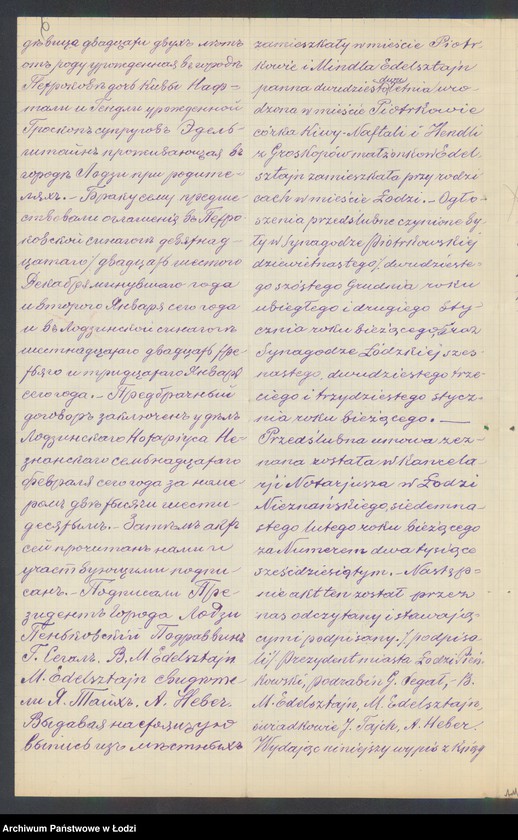 дѣвица двадцати двухъ лѣтъ
отъ роду урожденная въ городѣ
Петроковѣ дочь Кивы Наф=
тали и Гендли урожденной
Гроскопъ супруговъ Эдель-
штайнъ проживающая въ
городѣ Лодзи при родите-
ляхъ. - Браку сему предше-
ствовали оглашенія въ Петро-
ковской синагогѣ девятнад-
цатаго / двадцать шестого
Декабря минувшаго года
и второго Января сего года
и въ Лодзинской синагогѣ
шестнадцатаго двадцать тре-
тьяго и тридцатаго Января
сего года. - Предбрачный
договоръ заключенъ у дѣлъ
Лодзинскаго Нотаріуса Не-
знанскаго семьнадцатаго
февраля сего года за номе-
ромъ двѣ тысячи шести-
десятымъ. - Затѣмъ актъ
сей прочитанъ нами и
участвующими подпи-
санъ. - Подписали Пре-
зидентъ города Лодзи
Пеньковскій Подраввинъ
Г. Сегалъ, В. M. Edelsztajn
M. Edelsztajn Свидѣте-
ли Я. Тайхъ, А. Неверъ.
Выдавая настоящую
выпись изъ мѣстныхъ
zamieszkały w mieście Piotr-
kowie i Mindla Edelsztajn
panna dwudziesto dwu letnia uro-
dzona w mieście Piotrkowie
córka Kiwy-Naftali i Hendli
z Groskopów małżonków Edel-
sztajn zamieszkała przy rodzi-
cach w mieście Łodzi. - Ogło-
szenia przedślubne czynione by-
ły w Synagodze Piotrkowskiej
dziewiętnastego / dwudzieste-
go szóstego Grudnia roku
ubiegłego i drugiego Sty-
cznia roku bieżącego, oraz
Synagodze Łódzkiej szes-
nastego, dwudziestego trze-
ciego i trzydziestego stycz-
nia roku bieżącego. -
Przedślubna umowa zez-
nana została w Kancela-
rji Notarjusza w Łodzi
Nieznańskiego, siedemna-
stego lutego roku bieżącego
za Numerem dwa tysiące
sześćdziesiątym. - Następ-
nie akt ten został przez
nas odczytany i stawają-
cymi podpisany. / podpisa-
li / Prezydent miasta Łodzi Pień-
kowski, podrabin G. Segał, - B.
M. Edelsztajn, M. Edelsztajn,
świadkowie J. Tajch, A. Heber.
Wydając niniejszy wypis z Ksiąg
Archiwum Państwowe w Łodzi